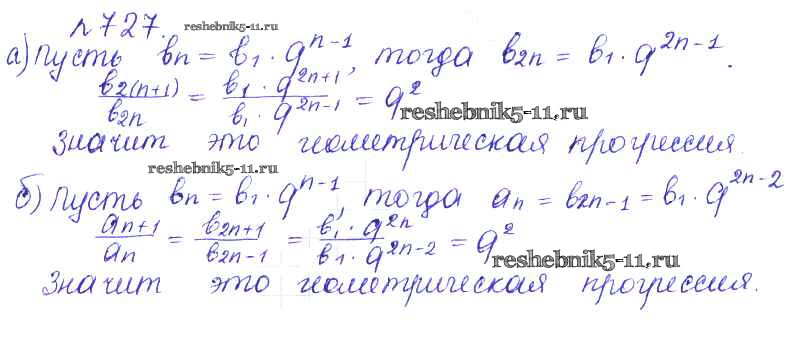 №727. reshebnik5-11.ru
а) Пусть bₙ = b₁ · qⁿ⁻¹, тогда b₂ₙ = b₁ · q²ⁿ⁻¹.
b₂₍ₙ₊₁₎/b₂ₙ = b₁ · q²ⁿ⁺¹ / b₁ · q²ⁿ⁻¹ = q² reshebnik5-11.ru
Значит это геометрическая прогрессия.
reshebnik5-11.ru
б) Пусть bₙ = b₁ · qⁿ⁻¹, тогда aₙ = b₂ₙ₋₁ = b₁ · q²ⁿ⁻²
aₙ₊₁/aₙ = b₂ₙ₊₁/b₂ₙ₋₁ = b₁ · q²ⁿ / b₁ · q²ⁿ⁻² = q² reshebnik5-11.ru
Значит это геометрическая прогрессия.